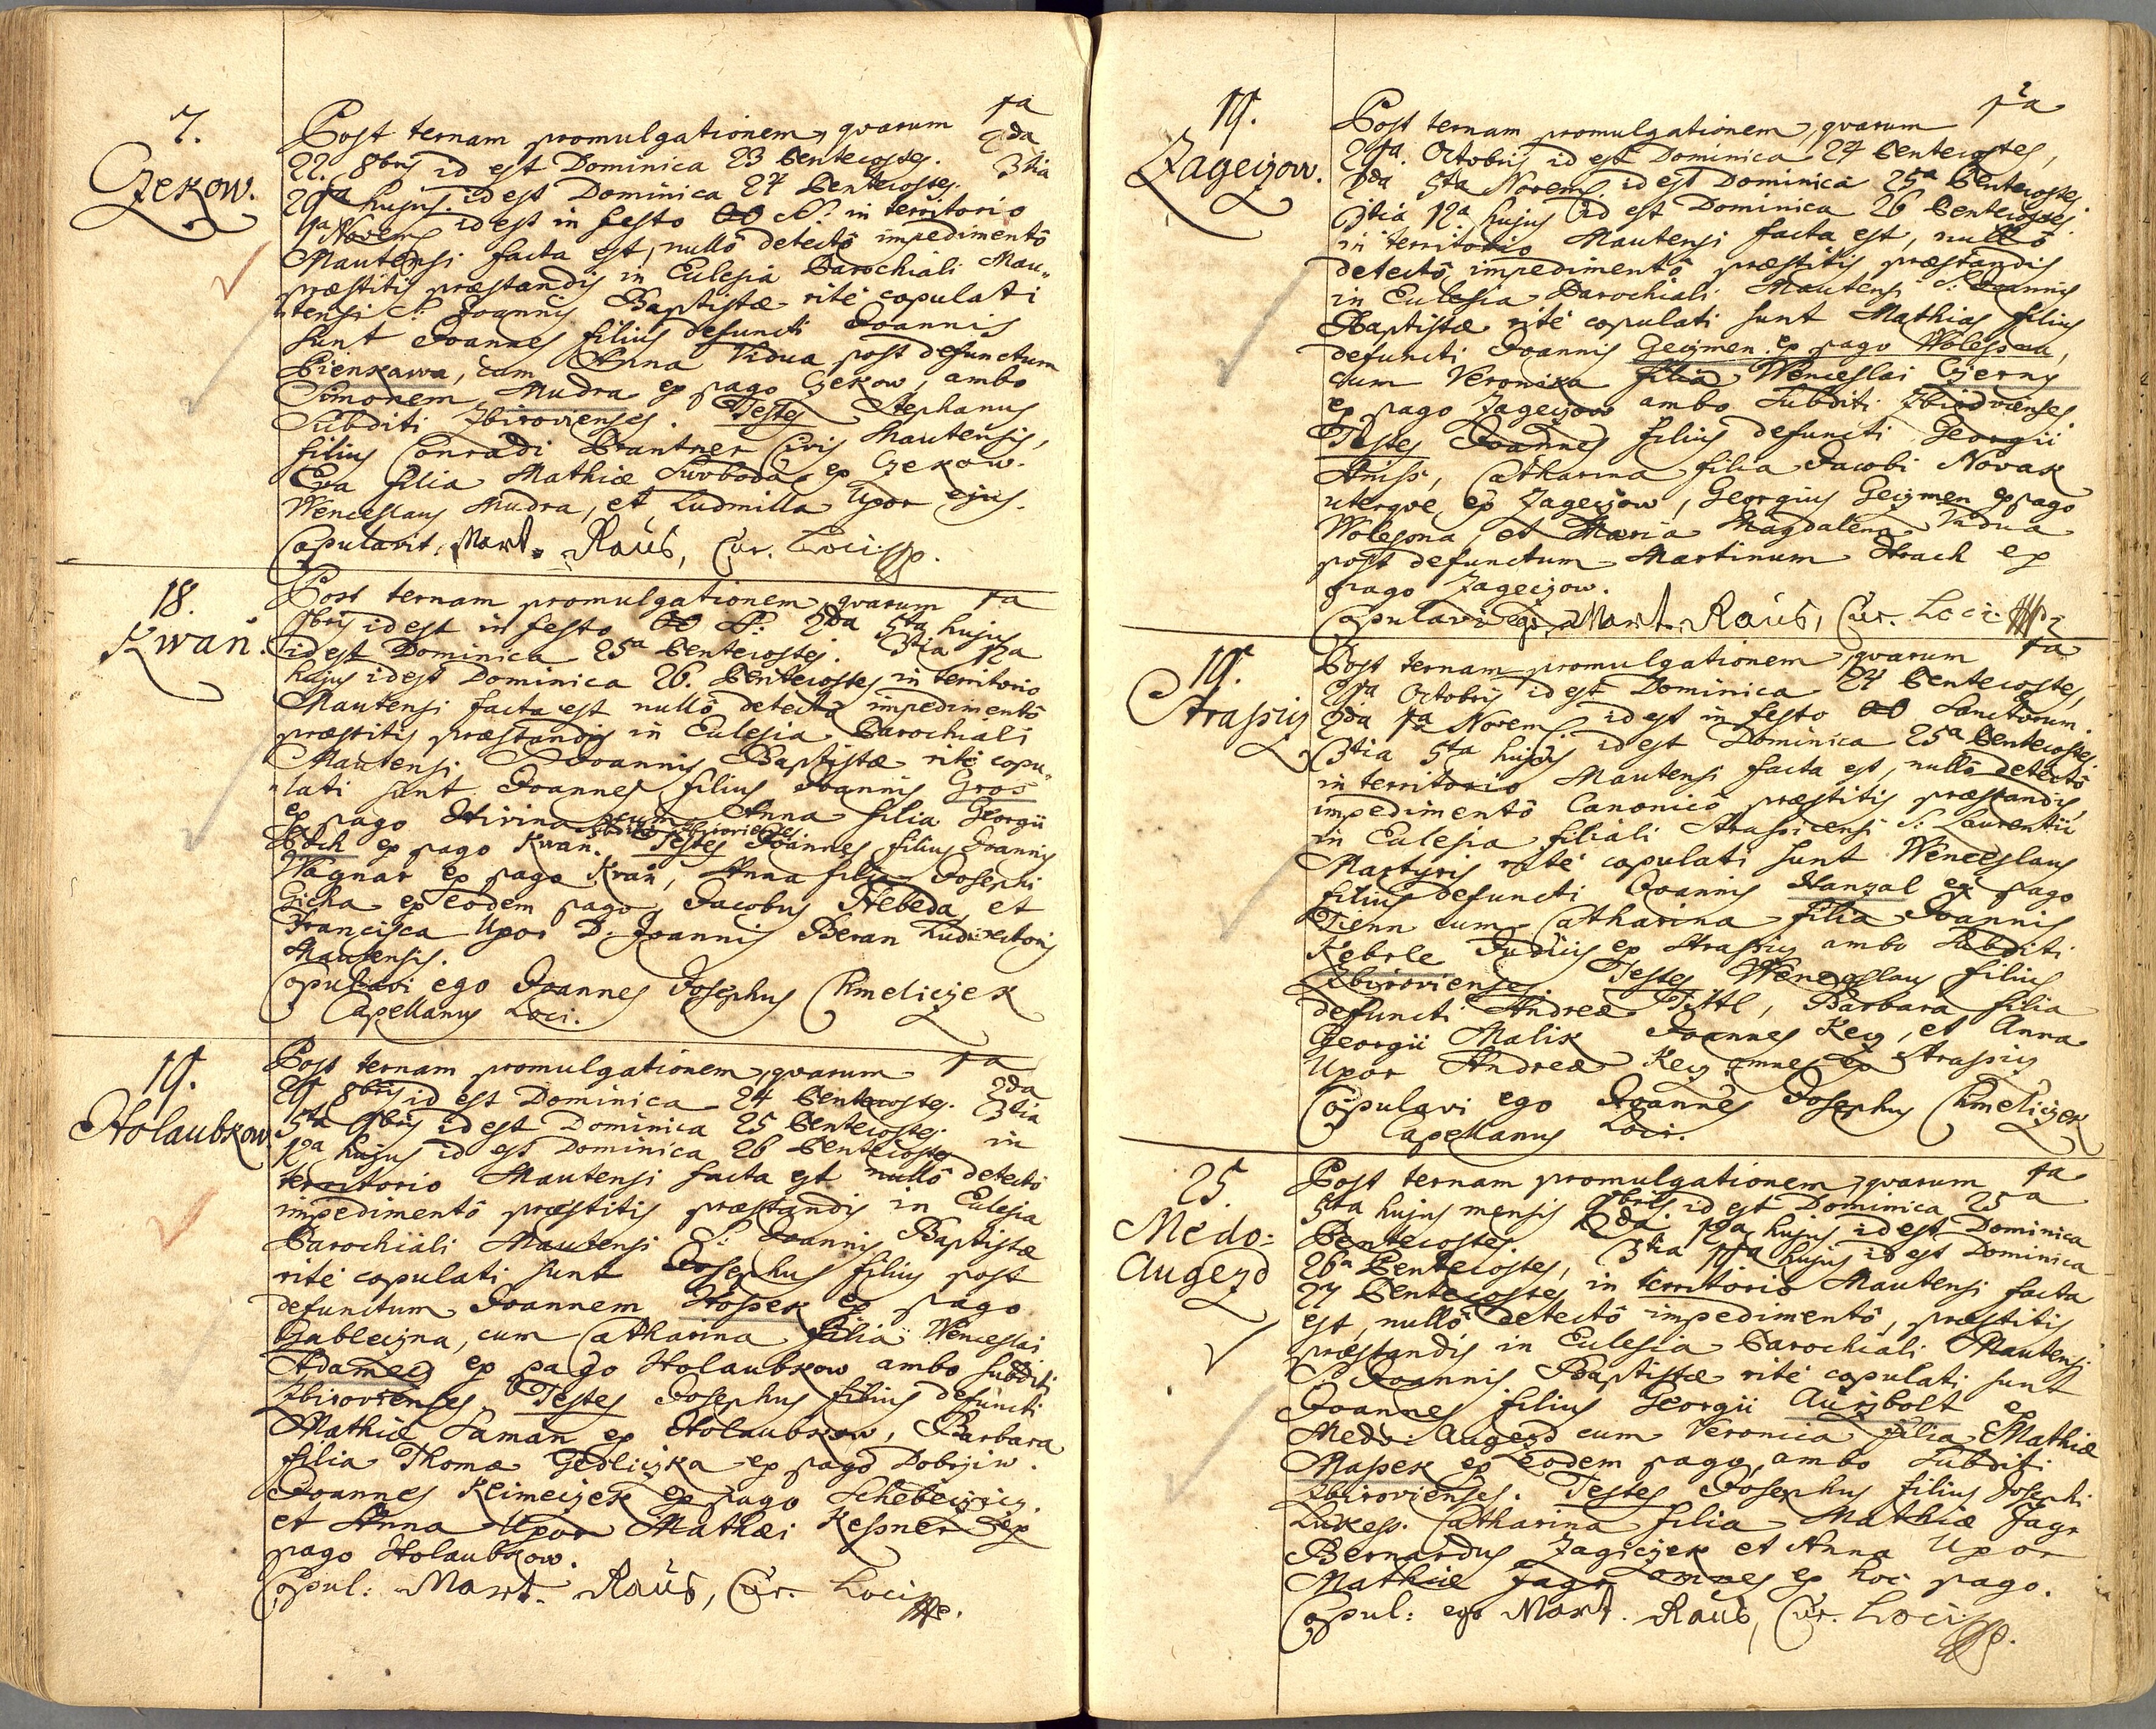 7.
Czekow.
Post ternam promulgationem, quarum 1a
22. 8bris id est Dominica 23 Pentecostes. 2da
29na hujus id est Dominica 24 Pentecostes. 3tia
1ma Novemb. id est in festo OO S.S. in territorio
Mautensi facta est, nullô detectô impedimentô
præstitis præstandis in Ecclesiâ Parochiali Mau„
„tensi S. Joannis Baptistæ ritè copulati
sunt Joannes filius defuncti Joannis
Pienkawa, cum Anna Vidua post defunctum
Simonem Mudra ex pago Czekow, ambo
Subditi Zbirovienses. Testes Stephanus
filius Conradi Brantner Civis Mautensis,
Eva filia Mathiæ Swoboda ex Czekow.
Wenceslaus Mudra, et Ludmilla Uxor ejus.
Copulavit, Mart. Raus, Cur. Loci mp.
18.
Kwań.
Post ternam promulgationem, quarum 1a
9bris id est in festo OO S.S. 2da 5ta hujus
id est Dominica 25ta Pentecostes. 3tia 12a
hujus id est Dominica 26. Pentecostes in territorio
Mautensi facta est nullô detectô impedimentô
præstitis præstandis in Ecclesia Parochiali
Mautensi S. Joannis Baptistæ ritè copu„
„lati sunt Joannes filius Joannis Gros
ex pago Stirina cum Anna filia Georgii
subditi Zbirovienses.
Pech ex pago Kwan. Testes Joannes filius Joannis
Wagnar ex pago Kwań, Anna filia Josephi
Gicha ex eodem pago, Jacobus Nebeda, et
Francisca Uxor D. Joannis Beran Ludirectoris
Mautensis.
Copulavi ego Joannes Josephus Chmeliczek
Capellanus Loci.
19.
Holaubkow.
Post ternam promulgationem, quarum 1a
29 8bris id est Dominica 24 Pentecostes. 2da
5ta 9bris id est Dominica 25 Pentecostes. 3tia
12a hujus id est Dominica 26 Pentecostes in
territorio Mautensi facta est nullô detectô
impedimentô præstitis præstandis in Ecclesia
Parochiali Mautensi S. Joannis Baptistæ
ritè copulati sunt Josephus filius post
defunctum Joannem Hospek ex pago
Gableczna, cum Catharina filia Wenceslai
Adamecz ex pago Holaubkow ambo subditi
Zbirovienses. Testes Josephus filius defuncti
Mathiæ Saman ex Holaubkow, Barbara
filia Thomæ Gedliczka ex pago Dobrziw.
Joannes Kleimeczek ex pago Scheberzicz.
et Anna Uxor Mathæi Kesner ex
pago Holaubkow.
Copul: Mart. Raus, Cur. Loci mp.
19.
Zageczow.
Post ternam promulgationem, quarum 1a
29na Octobris id est Dominica 24 Pentecostes,
2da 5ta Novemb. id est Dominica 25ta Pentecostes
3tia 12a hujus id est Dominica 26 Pentecostes
in territorio Mautensi facta est, nullô
detectô impedimentô præstitis præstandis
in Ecclesia Parochiali Mautensi S. Joannis
Baptistæ ritè copulati sunt Mathias filius
defuncti Joannis Geczmen ex pago Wolesna,
cum Veronika filia Wenceslai Czerny
ex pago Zageczow ambo Subditi Zbirovienses
Testes Joannes filius defuncti Georgii
Knisr, Catharina filia Jacobi Novak
uterque ex Zageczow, Georgius Geczmen ex pago
Wolesna, et Maria Magdalena Vidua
post defunctum Martinum Strach ex
pago Zageczow.
Copulavi ego Mart. Raus, Cur. Loci mp.
19.
Straszicz
Post ternam promulgationem, quarum 1a
29na Octobris id est Dominica 24 Pentecostes,
2da 1ma Novemb. id est in festo OO Sanctorum.
3tia 5ta hujus id est Dominica 25ta Pentecostes
in territorio Mautensi facta est, nullô detectô
impedimentô Canonicô præstitis præstandis,
in Ecclesia filiali Straszicensi S. Laurentii
Martyris ritè copulati sunt Wenceslaus
filius defuncti Joannis Hanzal ex pago
Tienn cum Catharina filia Joannis
Keberle Judicis ex Straszicz ambo Subditi
Zbirovienses. Testes Wenceslaus filius
defuncti Andreæ Tittl, Barbara filia
Georgii Malik Joannes Key, et Anna
Uxor Andreæ Key omnes ex Straszicz
Copulavi ego Joannes Josephus Chmeliczek
Capellanus Loci.
25.
Medo:
Augezd
Post ternam promulgationem, quarum 1a
5ta hujus mensis 9bris id est Dominica 25ta
Pentecostes. 2da 12a hujus id est Dominica
26ta Pentecostes, 3tia 19na hujus id est Dominica
27 Pentecostes in territorio Mautensi facta
est, nullô detectô impedimentô, præstitis
præstandis in Ecclesia Parochiali Mautensi
S. Joannis Baptistæ ritè copulati sunt
Joannes filius Georgii Aurzbolt ex
Medo: Augezd cum Veronica filia Mathiæ
Maszek ex eodem pago, ambo Subditi
Zbirovienses. Testes Josephus filius Josephi
Lukess. Catharina filia Mathiæ Fagr
Bernardus Zagiczek et Anna Uxor
Mathiæ Fagr omnes ex hoc pago.
Copul: ego Mart. Raus, Cur. Loci mp.